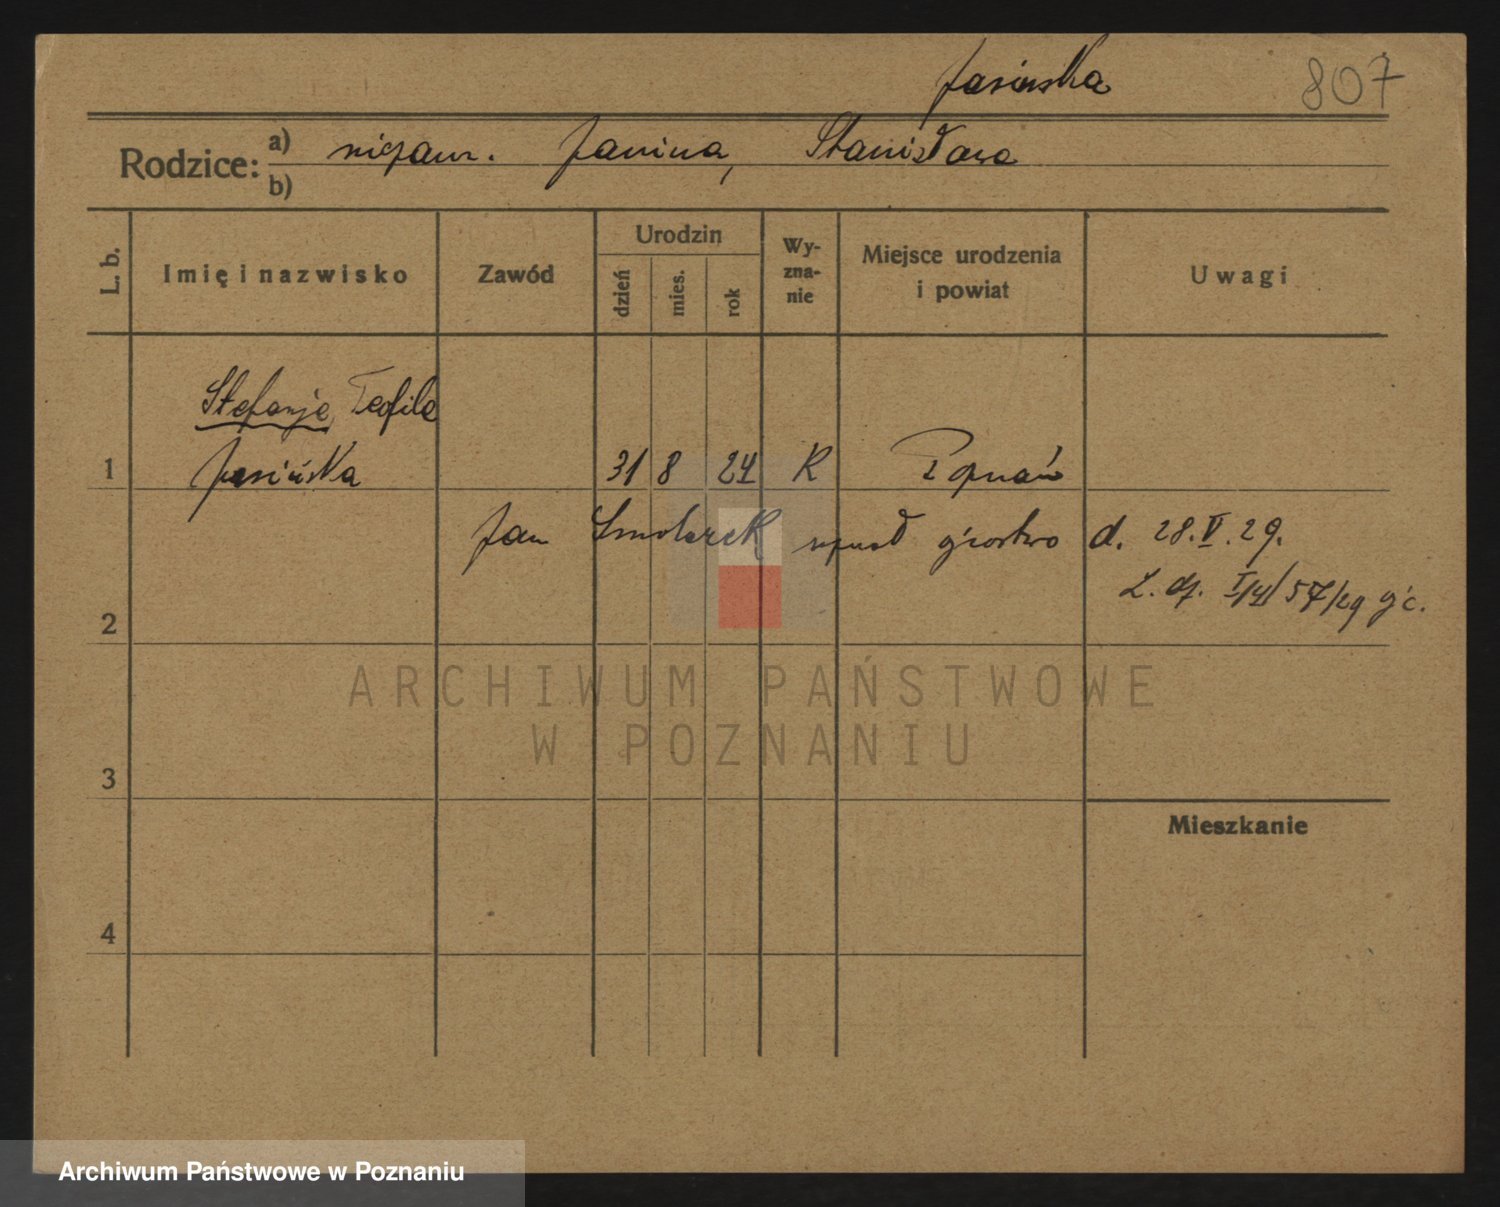 Jasińska 807
Rodzice: a) niezam. Janina, Stanisława
b)
L. b. Imię i nazwisko Zawód Urodzin dzień mies. rok Wy-zna-nie Miejsce urodzenia i powiat Uwagi
Stefanja Teofila
1 Jasińska 31 8 24 K Poznań
Jan Smolarek uznał ojcostwo d. 28.V.29.
2 L. dz. 57/29
ARCHIWUM PAŃSTWOWE
W POZNANIU
3
Mieszkanie
4
Archiwum Państwowe w Poznaniu